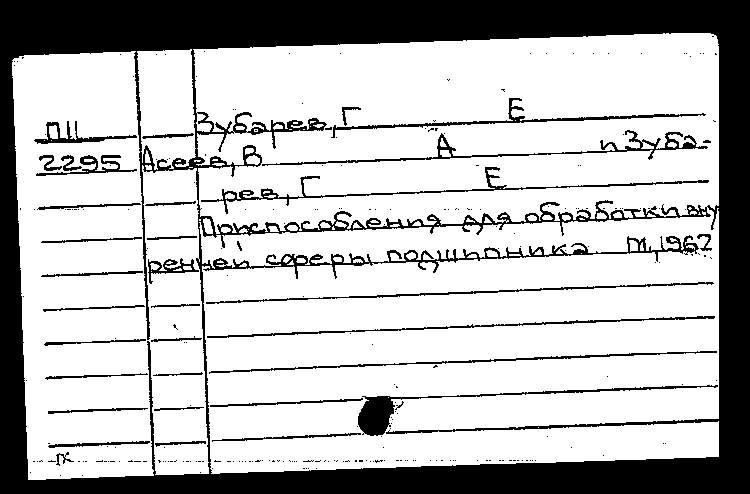 П11 Зубарев, Г Е
2295 Асеев, В А п Зуба-
рев, Г Е
Приспособления для обработки вну
ренней сферы подшипника М, 1962